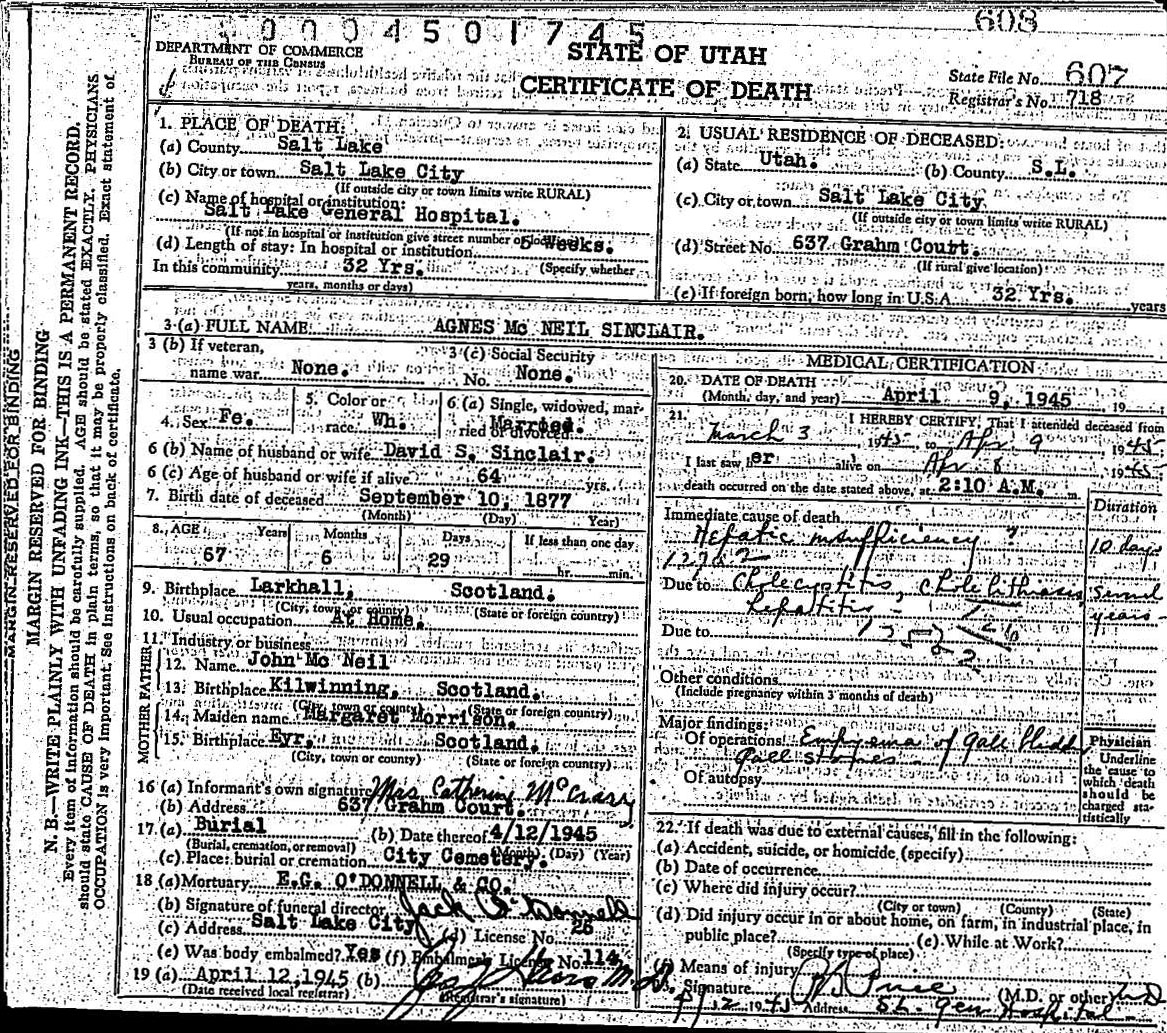 0004501745
608
DEPARTMENT OF COMMERCE
BUREAU OF THE CENSUS
STATE OF UTAH
CERTIFICATE OF DEATH
State File No. 607
Registrar's No. 718
MARGIN RESERVED FOR BINDING
MARGIN RESERVED FOR BINDING
N. B.—WRITE PLAINLY WITH UNFADING INK—THIS IS A PERMANENT RECORD.
Every item of information should be carefully supplied. AGE should be stated EXACTLY. PHYSICIANS
should state CAUSE OF DEATH in plain terms, so that it may be properly classified. Exact statement of
OCCUPATION is very important. See instructions on back of certificate.
1. PLACE OF DEATH:
(a) County Salt Lake
(b) City or town Salt Lake City
(If outside city or town limits write RURAL)
(c) Name of hospital or institution:
Salt Lake General Hospital.
(If not in hospital or institution give street number or location)
(d) Length of stay: In hospital or institution 5 Weeks.
In this community 32 Yrs. (Specify whether
years, months or days)
2. USUAL RESIDENCE OF DECEASED:
(a) State Utah. (b) County S.L.
(c) City or town Salt Lake City.
(If outside city or town limits write RURAL)
(d) Street No. 637 Grahm Court.
(If rural give location)
(e) If foreign born, how long in U.S.A. 32 Yrs. years
3 (a) FULL NAME AGNES Mc NEIL SINCLAIR.
3 (b) If veteran,
name war None.
3 (c) Social Security
No. None.
4. Sex Fe.
5. Color or
race Wh.
6 (a) Single, widowed, mar-
ried or divorced Married.
6 (b) Name of husband or wife David S. Sinclair.
6 (c) Age of husband or wife if alive 64 yrs.
7. Birth date of deceased September 10, 1877
(Month) (Day) Year)
8. AGE Years Months Days If less than one day
67 6 29 hr. min.
9. Birthplace Larkhall, Scotland.
(City, town or county) (State or foreign country)
10. Usual occupation At Home.
11. Industry or business
FATHER
12. Name John Mc Neil
13. Birthplace Kilwinning, Scotland.
(City, town or county) (State or foreign country)
MOTHER
14. Maiden name Margaret Morrison.
15. Birthplace Eyr, Scotland.
(City, town or county) (State or foreign country)
16 (a) Informant's own signature Mrs Catherine McCrary
(b) Address 637 Grahm Court.
17. (a) Burial (b) Date thereof 4/12/1945
(Burial, cremation, or removal) (Month) (Day) (Year)
(c) Place: burial or cremation City Cemetery.
18 (a) Mortuary E.G. O'DONNELL & CO.
(b) Signature of funeral director Jack O'Donnell
(c) Address Salt Lake City (d) License No. 26
(e) Was body embalmed? Yes (f) Embalmer's License No. 114
19 (a) April 12, 1945 (b) M.D.
(Date received local registrar) (Registrar's signature)
MEDICAL CERTIFICATION
20. DATE OF DEATH
(Month, day, and year) April 9, 1945 19
21. I HEREBY CERTIFY, That I attended deceased from
March 3 1945 to Apr. 9 1945
I last saw her alive on Apr 8 1945
death occurred on the date stated above, at 2:10 A.M. m
Duration
Immediate cause of death
Hepatic insufficiency 10 days
Due to Cholecystitis, cholelithiasis, Several
hepatitis years
Due to
Other conditions
(Include pregnancy within 3 months of death)
Major findings:
Of operations Empyema of gall bladder
Gall stones
Of autopsy
Physician
Underline
the cause to
which death
should be
charged sta-
tistically
22. If death was due to external causes, fill in the following:
(a) Accident, suicide, or homicide (specify)
(b) Date of occurrence
(c) Where did injury occur?
(City or town) (County) (State)
(d) Did injury occur in or about home, on farm, in industrial place, in
public place? (e) While at Work?
(Specify type of place)
(f) Means of injury
Signature (M.D. or other) MD
Address S.L. Gen Hospital